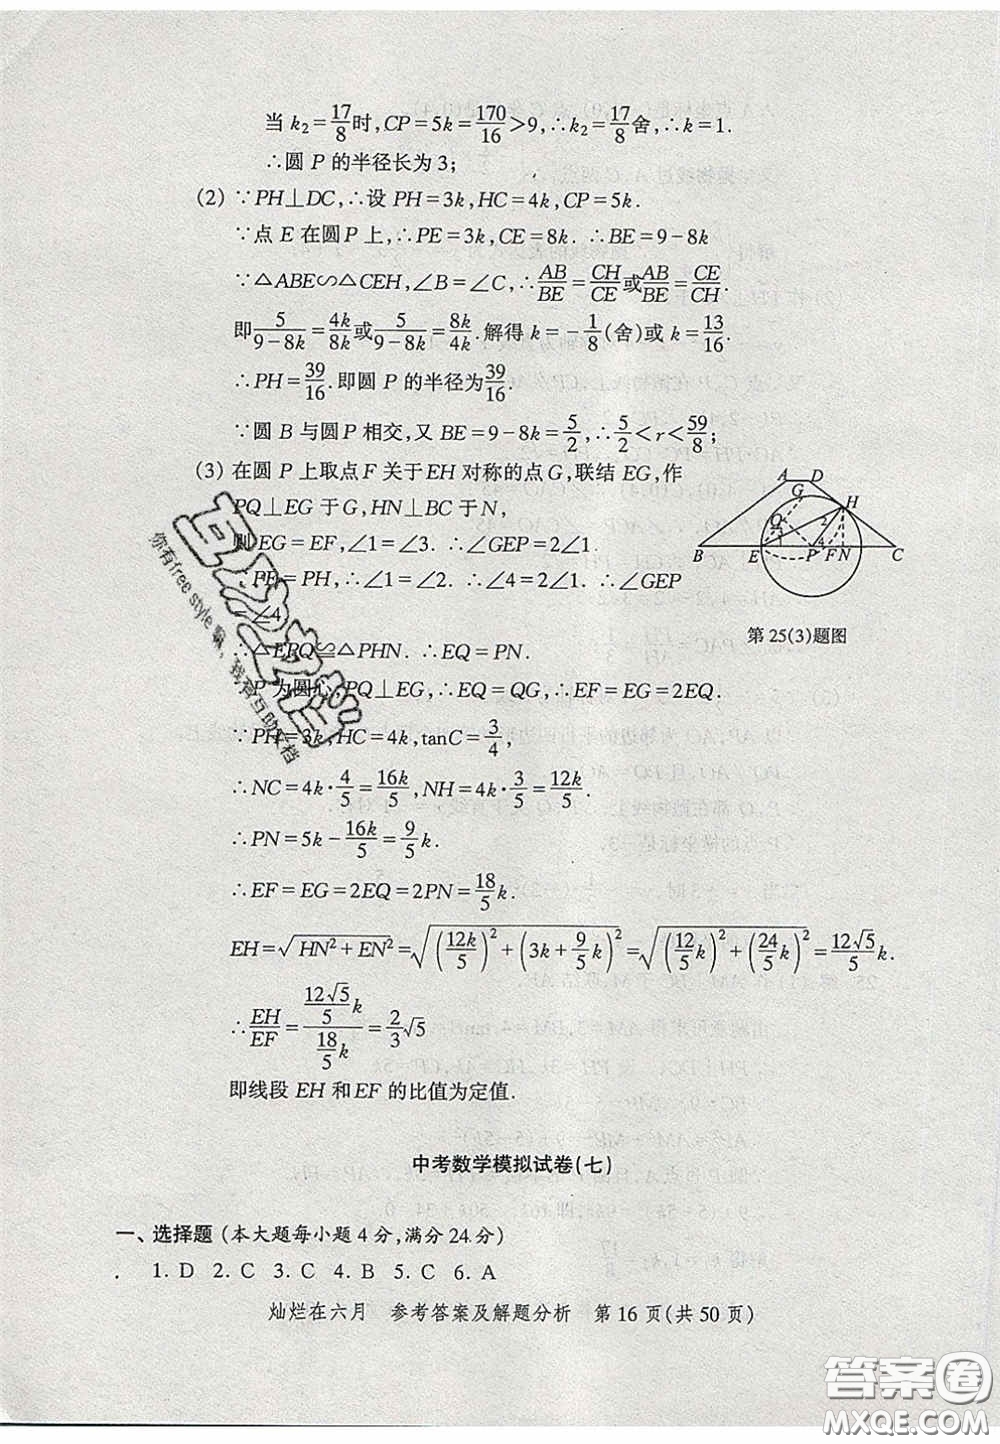 当 k₂=17/8时,CP=5k=170/16>9,∴k₂=17/8舍,∴k=1.
∴圆 P 的半径长为 3;
(2) ∵PH⊥DC,∴设 PH=3k,HC=4k,CP=5k.
∵点 E 在圆 P 上,∴PE=3k,CE=8k. ∴BE=9-8k
∵△ABE∽△CEH,∠B=∠C,∴AB/BE=CH/CE或AB/BE=CE/CH.
即5/(9-8k)=4k/8k或5/(9-8k)=8k/4k.解得 k=-1/8(舍)或 k=13/16.
∴PH=39/16.即圆 P 的半径为39/16.
∵圆 B 与圆 P 相交,又 BE=9-8k=5/2,∴5/2<r<59/8;
(3) 在圆 P 上取点 F 关于 EH 对称的点 G,联结 EG,作
PQ⊥EG 于 G,HN⊥BC 于 N,
则 EG=EF,∠1=∠3. ∴∠GEP=2∠1.
∵PE=PH,∴∠1=∠2. ∴∠4=2∠1. ∴∠GEP
=∠4
∴△EPQ≌△PHN. ∴EQ=PN.
P 为圆心,PQ⊥EG,∴EQ=QG,∴EF=EG=2EQ.
∵PH=3k,HC=4k,tanC=3/4,
∴NC=4k·4/5=16k/5,NH=4k·3/5=12k/5
∴PN=5k-16k/5=9/5k.
∴EF=EG=2EQ=2PN=18/5k.
EH=√(HN²+EN²)=√((12k/5)²+(3k+9/5k)²)=√((12/5k)²+(24/5k)²)=12√5/5k.
∴EH/EF=(12√5/5k)/(18/5k)=2/3√5
即线段 EH 和 EF 的比值为定值.
A D G H Q 2 1 3 4 B E P F N C
第 25(3)题图
中考数学模拟试卷(七)
一、选择题 (本大题每小题 4 分,满分 24 分)
1. D 2. C 3. C 4. B 5. C 6. A
灿烂在六月 参考答案及解题分析 第 16 页(共 50 页)
互助文档
你有free style 嘛，我有互助文档
答案圈
MXQE.COM